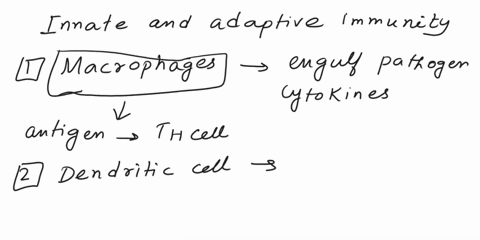 Innate and adaptive Immunity
1 Macrophages → engulf pathogen
cytokines
antigen → TH cell
2 Dendritic cell →